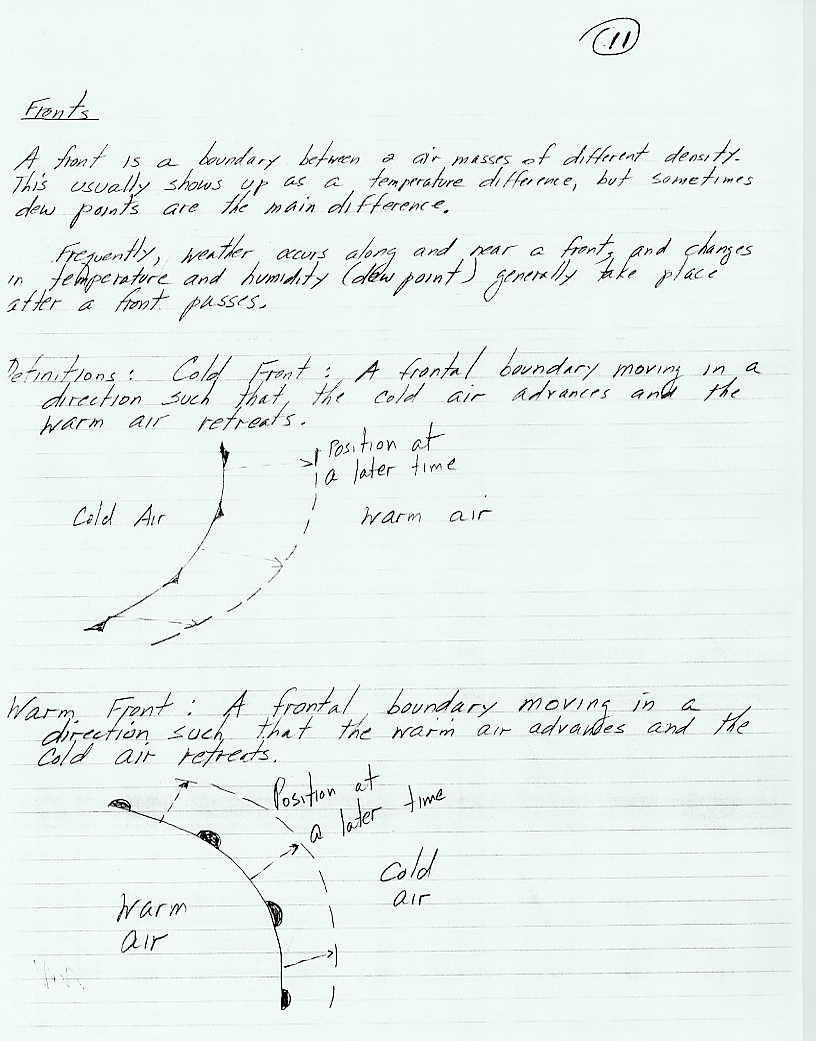 11
Fronts
A front is a boundary between 2 air masses of different density.
This usually shows up as a temperature difference, but sometimes
dew points are the main difference.
Frequently, weather occurs along and near a front, and changes
in temperature and humidity (dew point) generally take place
after a front passes.
Definitions: Cold Front: A frontal boundary moving in a
direction such that, the cold air advances and the
warm air retreats.
Position at
a later time
Cold Air
Warm air
Warm Front: A frontal boundary moving in a
direction such that the warm air advances and the
Cold air retreats.
Position at
a later time
Cold
air
Warm
air